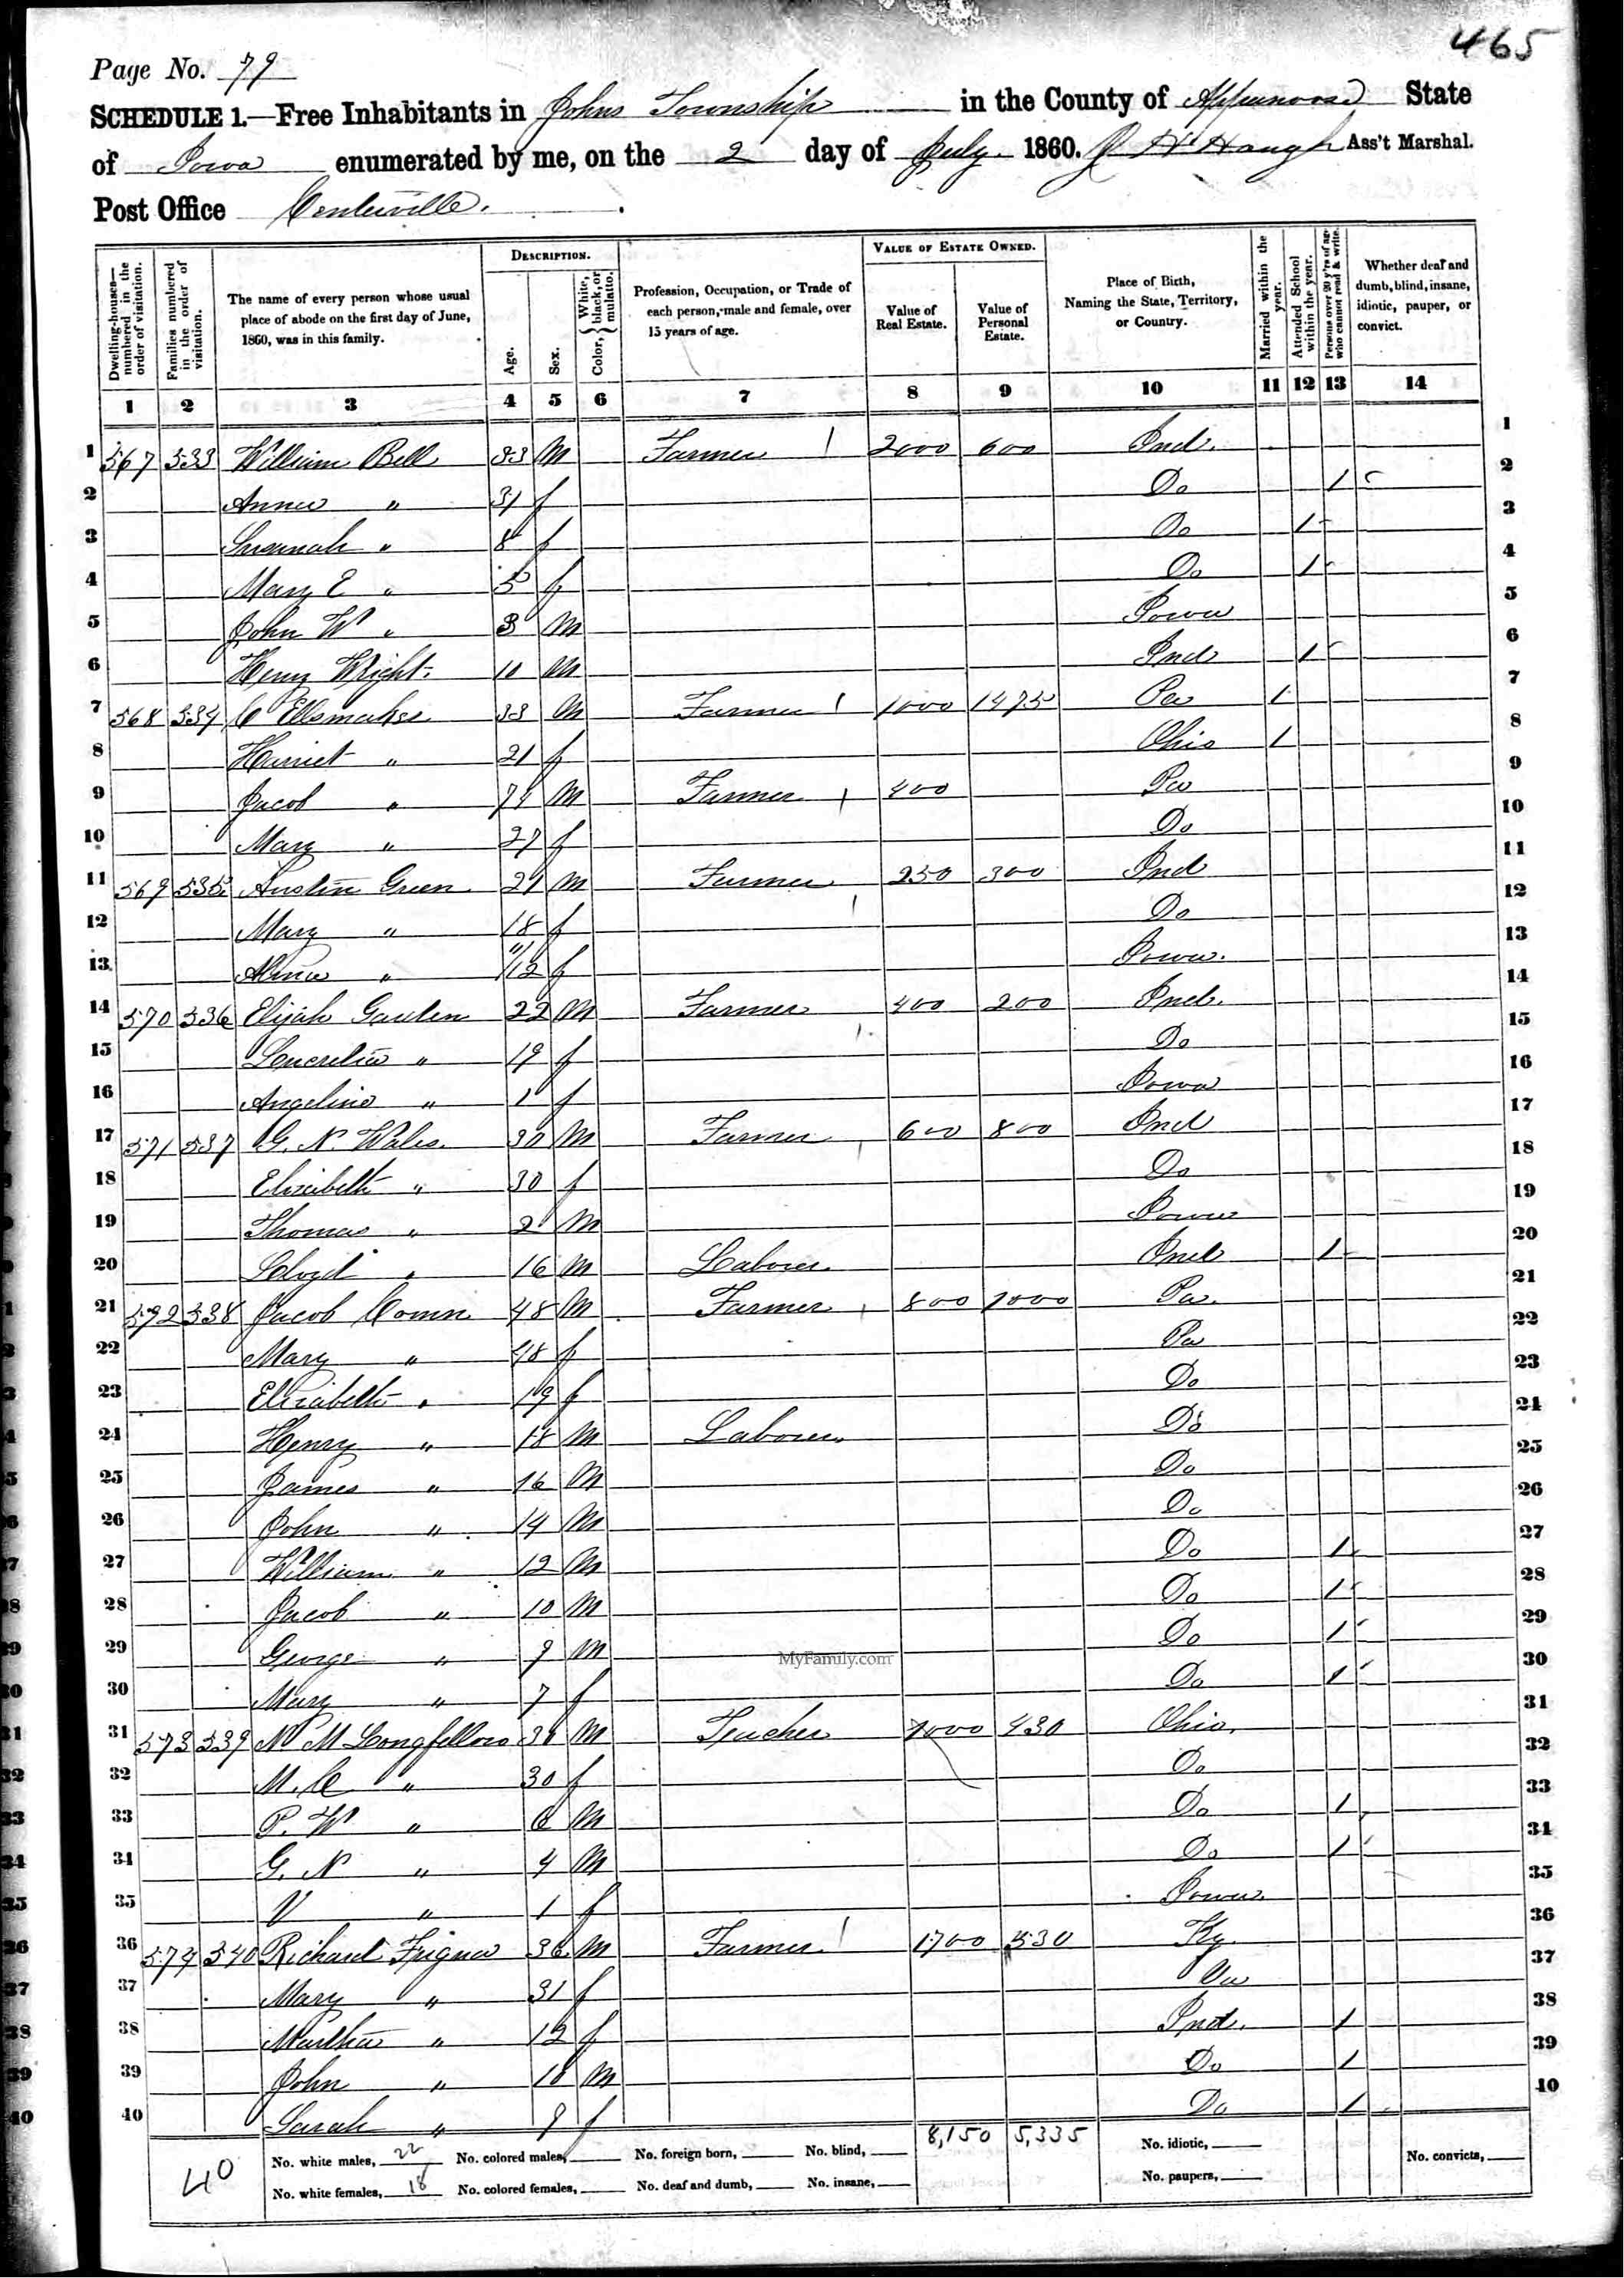 465
Page No. 79
SCHEDULE 1.—Free Inhabitants in Johns Township in the County of Appanoose State
of Iowa enumerated by me, on the 2 day of July 1860. Ass't Marshal.
Post Office Centerville.
DESCRIPTION. VALUE OF ESTATE OWNED.
Dwelling-houses—numbered in the order of visitation. Families numbered in the order of visitation. The name of every person whose usual place of abode on the first day of June, 1860, was in this family. Age. Sex. Color, { White, black, or mulatto. Profession, Occupation, or Trade of each person, male and female, over 15 years of age. Value of Real Estate. Value of Personal Estate. Place of Birth, Naming the State, Territory, or Country. Married within the year. Attended School within the year. Persons over 20 y'rs of age who cannot read & write. Whether deaf and dumb, blind, insane, idiotic, pauper, or convict.
1 2 3 4 5 6 7 8 9 10 11 12 13 14
1 567 533 William Bell 33 M Farmer 2000 600 Ind. 1
2 " 31 f Do 1 2
3 Susanah " 8 f Do 1 3
4 Mary E " 5 f Do 1 4
5 John W " 3 M Iowa 5
6 Henry Wright 10 M Ind 1 6
7 568 534 C 33 M Farmer 1000 1475 Pa 1 7
8 Harriet " 21 f Ohio 1 8
9 Jacob " M Farmer 400 Pa 9
10 Mary " 27 f Do 10
11 569 535 Austin Green 21 M Farmer 250 300 Ind 11
12 Mary " 18 f Do 12
13 " 11/12 f Iowa. 13
14 570 536 Elijah 22 M Farmer 400 200 Ind. 14
15 Lucretia " 19 f Do 15
16 Angeline " 1 f Iowa 16
17 571 537 G. N. Wales 30 M Farmer 600 800 Ind 17
18 Elizabeth " 30 f Do 18
19 Thomas " 2 M Iowa 19
20 Lloyd " 16 M Laborer Ind 1 20
21 572 538 Jacob 48 M Farmer 800 1000 Pa. 21
22 Mary " 48 f Pa 22
23 Elizabeth " 19 f Do 23
24 Henry " 18 M Laborer Do 24
25 James " 16 M Do 25
26 John " 14 M Do 26
27 William " 12 M Do 1 27
28 Jacob " 10 M Do 1 28
29 George " 9 M Do 1 29
MyFamily.com
30 Mary " 7 f Do 1 30
31 573 539 N M Longfellow M Teacher 1000 430 Ohio. 31
32 M. C " 30 f Do 32
33 P. W " 6 M Do 1 33
34 G. N " 4 M Do 1 34
35 V " 1 f Iowa 35
36 574 540 Richard 36 M Farmer 1700 530 Ky. 36
37 Mary " 31 f 37
38 Martha " 12 f Ind. 1 38
39 John " 10 M Do 1 39
40 Sarah " 9 f Do 1 40
8,150 5,335
40 No. white males, 22 No. colored males, No. foreign born, No. blind, No. idiotic, No. convicts,
No. white females, 18 No. colored females, No. deaf and dumb, No. insane, No. paupers,